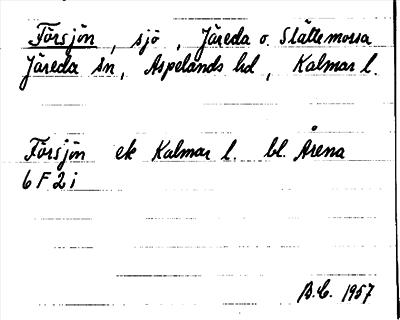 Försjön, sjö, Järeda o. Slättemossa
Järeda sn, Aspelands hd, Kalmar l.
Försjön ek Kalmar l. bl. Årena
6 F 2 i
B.C. 1957